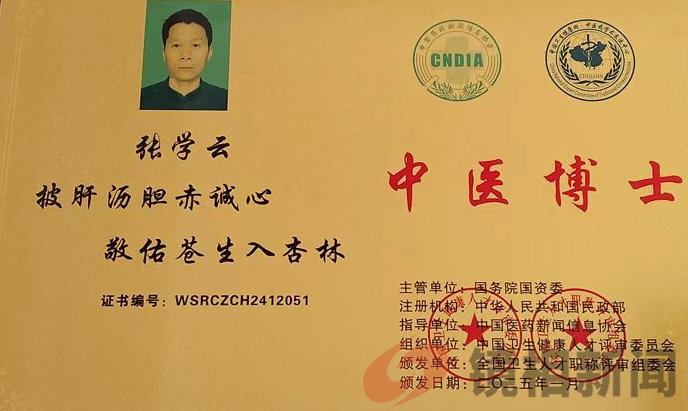 CNDIA
CHINAHN
张学云
披肝沥胆赤诚心
敬佑苍生入杏林
证书编号：WSRCZCH2412051
中医博士
主管单位：国务院国资委
注册机构：中华人民共和国民政部
指导单位：中国医药新闻信息协会
组织单位：中国卫生健康人才评审委员会
颁发单位：全国卫生人才职称评审组委会
颁发日期：二〇二五年一月
镜相新闻